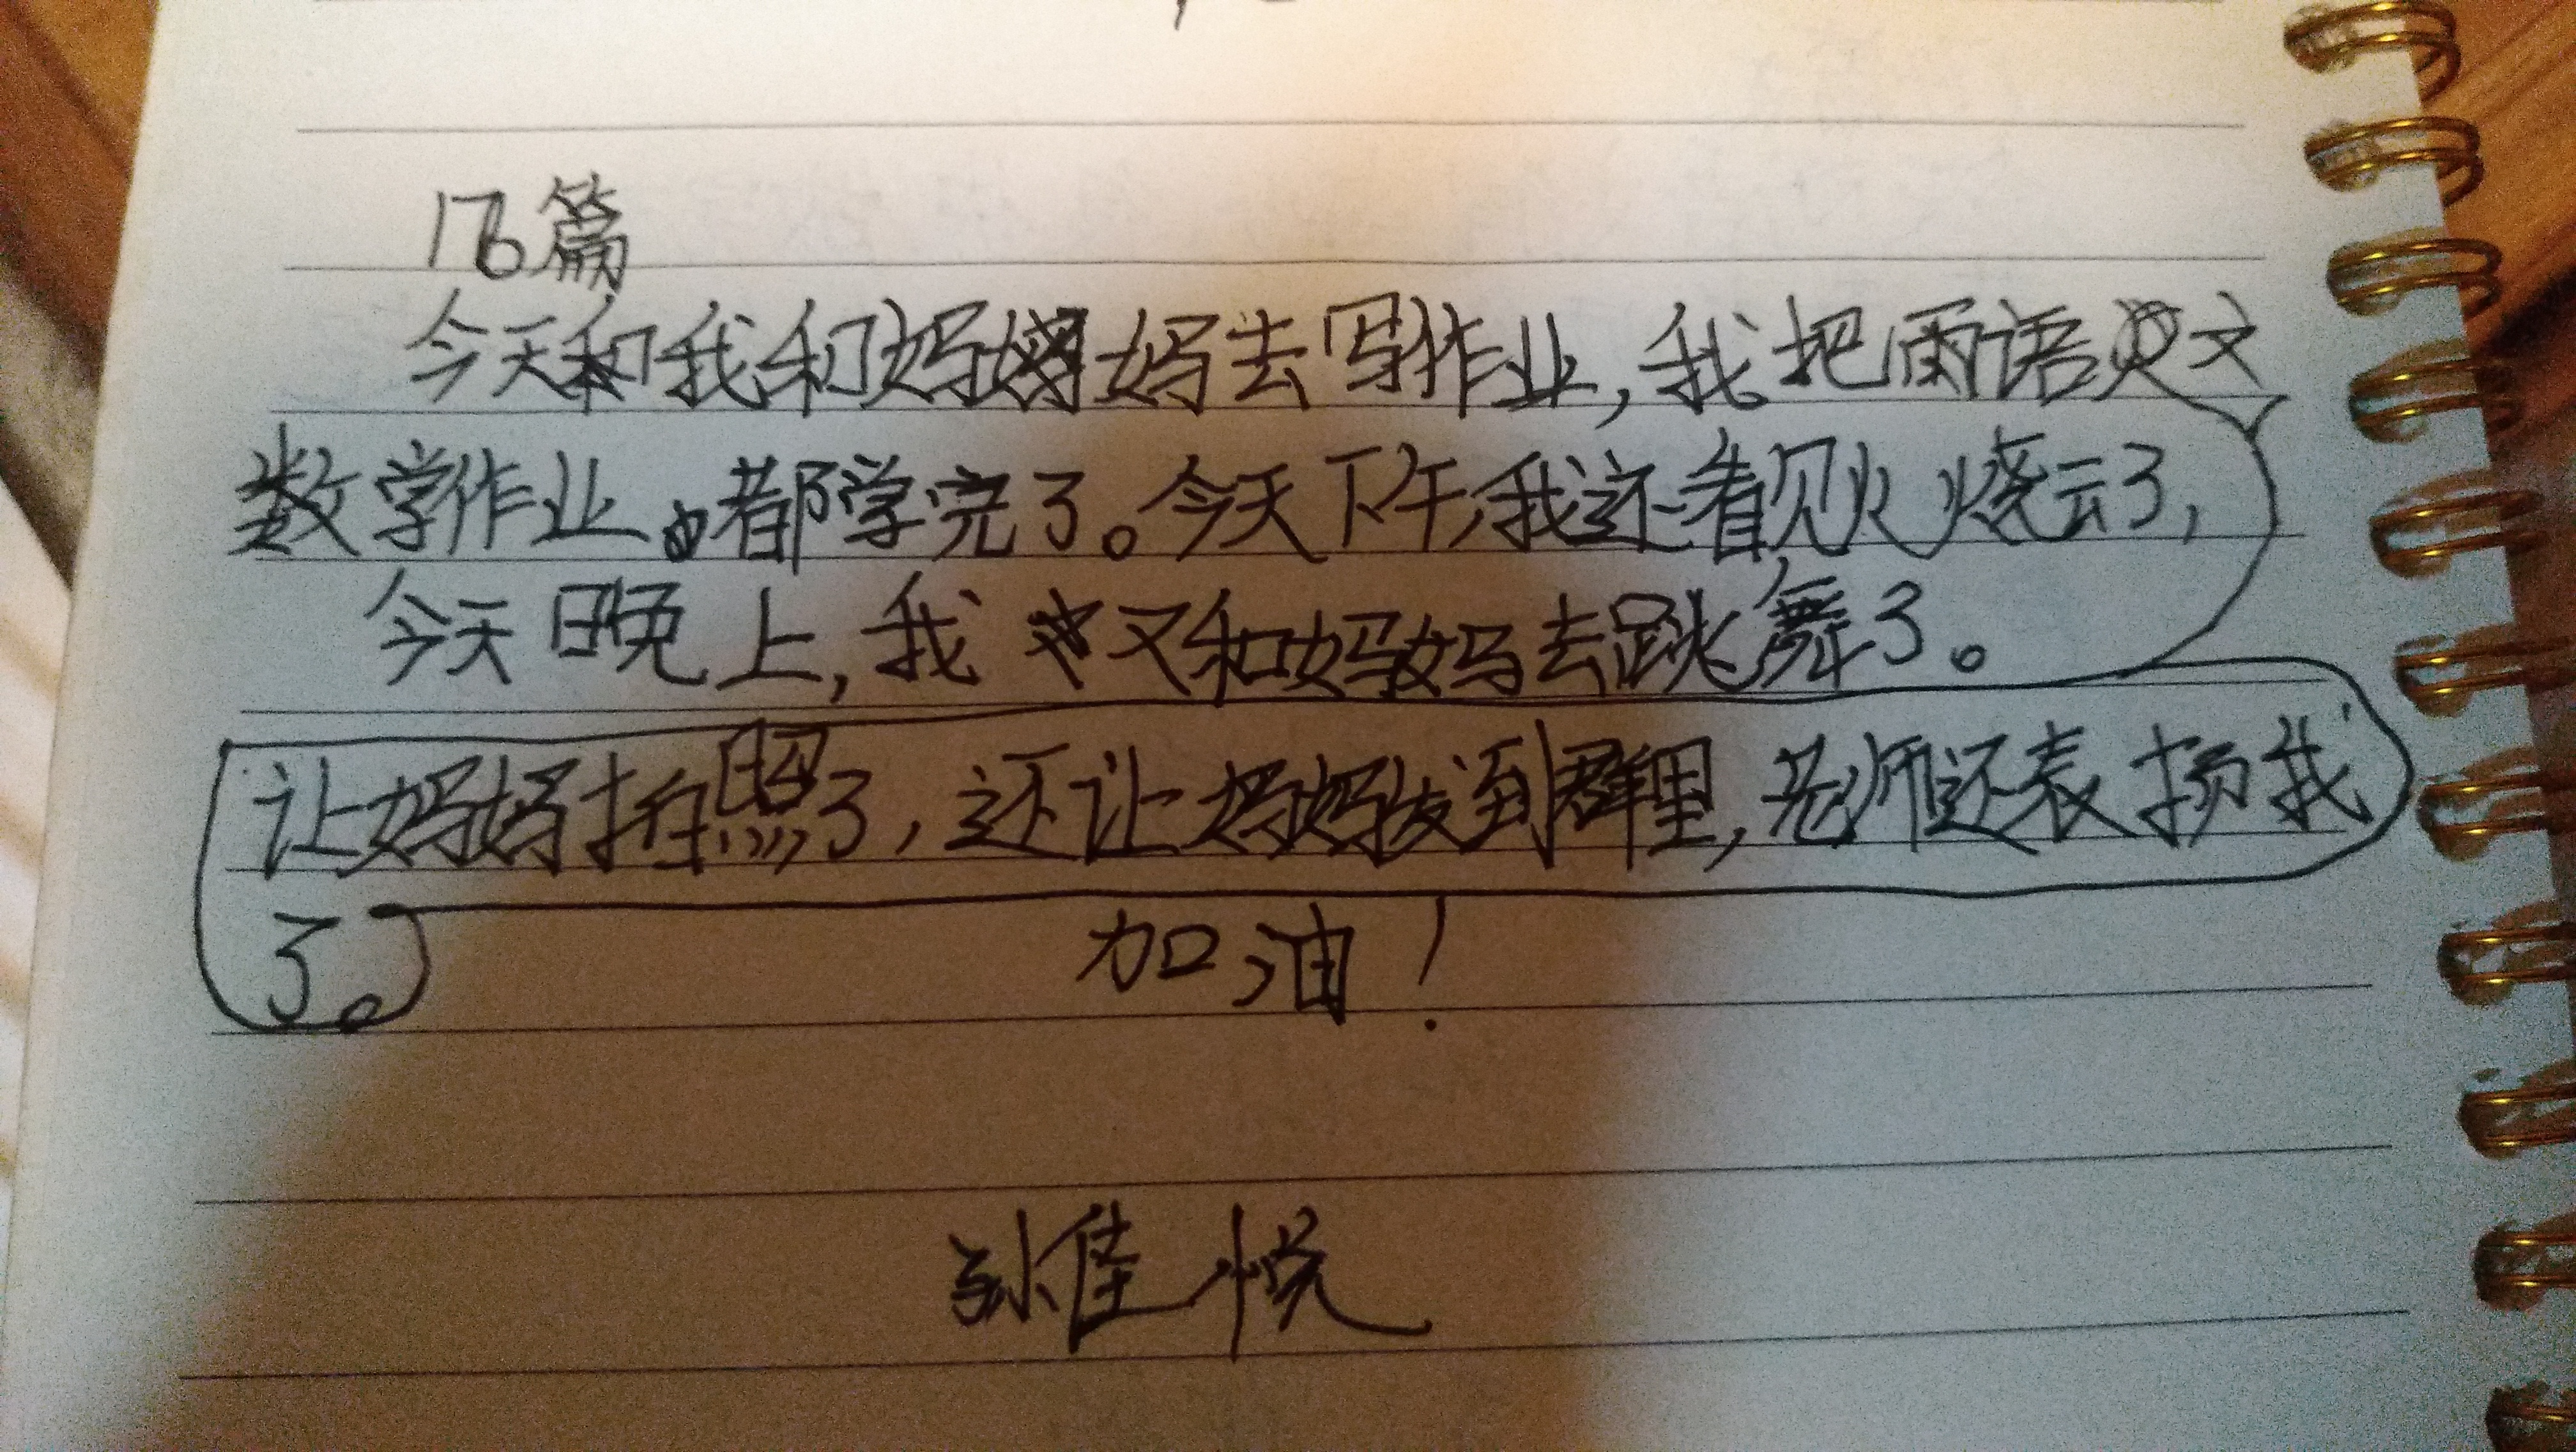 176篇
今天我和妈妈去写作业，我把语文
数学作业都学完了。今天下午，我还看见火烧云了，
今天晚上，我又和妈妈去跳舞了。
让妈妈拍照了，还让妈妈发到群里，老师还表扬我
了。 加油！
孙佳悦